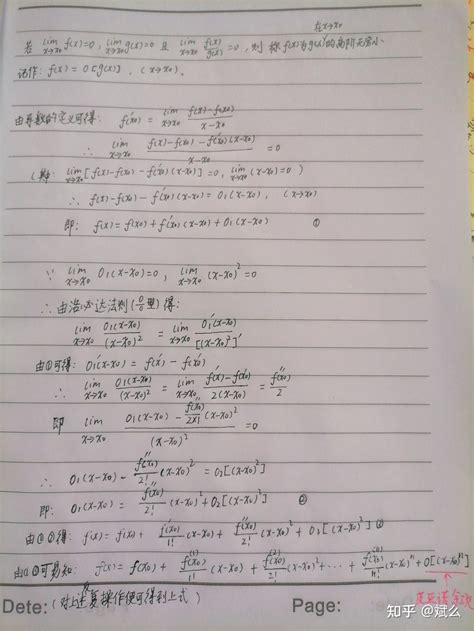 在x→x₀
若 lim_{x→x₀} f(x)=0, lim_{x→x₀} g(x)=0 且 lim_{x→x₀} f(x)/g(x) =0, 则 称 f(x)为g(x)的高阶无穷小
记作: f(x) = o[g(x)], (x→x₀).
由导数的定义可得: f'(x₀) = lim_{x→x₀} (f(x)-f(x₀))/(x-x₀)
∴ lim_{x→x₀} (f(x)-f(x₀)-f'(x₀)(x-x₀))/(x-x₀) =0
lim_{x→x₀}[f(x)-f(x₀)-f'(x₀)(x-x₀)]=0, lim_{x→x₀}(x-x₀)=0)
∴ f(x)-f(x₀)-f'(x₀)(x-x₀) = o₁(x-x₀), (x→x₀)
即: f(x) = f(x₀)+f'(x₀)(x-x₀)+o₁(x-x₀) ①
∵ lim_{x→x₀} o₁(x-x₀)=0, lim_{x→x₀}(x-x₀)²=0
∴ 由洛必达法则(0/0型)得:
lim_{x→x₀} o₁(x-x₀)/(x-x₀)² = lim_{x→x₀} o₁'(x-x₀)/[(x-x₀)²]'
由①可得: o₁'(x-x₀) = f'(x)-f'(x₀)
∴ lim_{x→x₀} o₁(x-x₀)/(x-x₀)² = lim_{x→x₀} (f'(x)-f'(x₀))/2(x-x₀) = f''(x₀)/2
即 lim_{x→x₀} (o₁(x-x₀) - f''(x₀)/2×1 (x-x₀)²)/(x-x₀)² =0
∴ o₁(x-x₀) - f''(x₀)/2! (x-x₀)² = o₂[(x-x₀)²]
即: o₁(x-x₀) = f''(x₀)/2! (x-x₀)² + o₂[(x-x₀)²] ②
由①②得: f(x) = f(x₀) + f'(x₀)/1! (x-x₀) + f''(x₀)/2! (x-x₀)² + o₂[(x-x₀)²]
f(x) = f(x₀) + f⁽¹⁾(x₀)/1! (x-x₀) + f⁽²⁾(x₀)/2! (x-x₀)² + ⋯ + f⁽ⁿ⁾(x₀)/n! (x-x₀)ⁿ + o[(x-x₀)ⁿ]
Dete: (对上述 复操作便可得到上式) Page:
知乎 @斌么